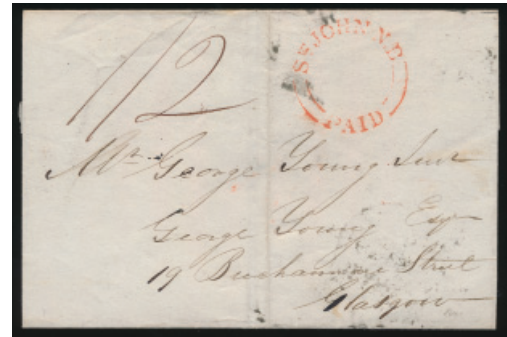 1/2
St JOHN. N.B.
PAID
Mr. George Young Junr
George Young Esqr
19 Buchanan Street
Glasgow